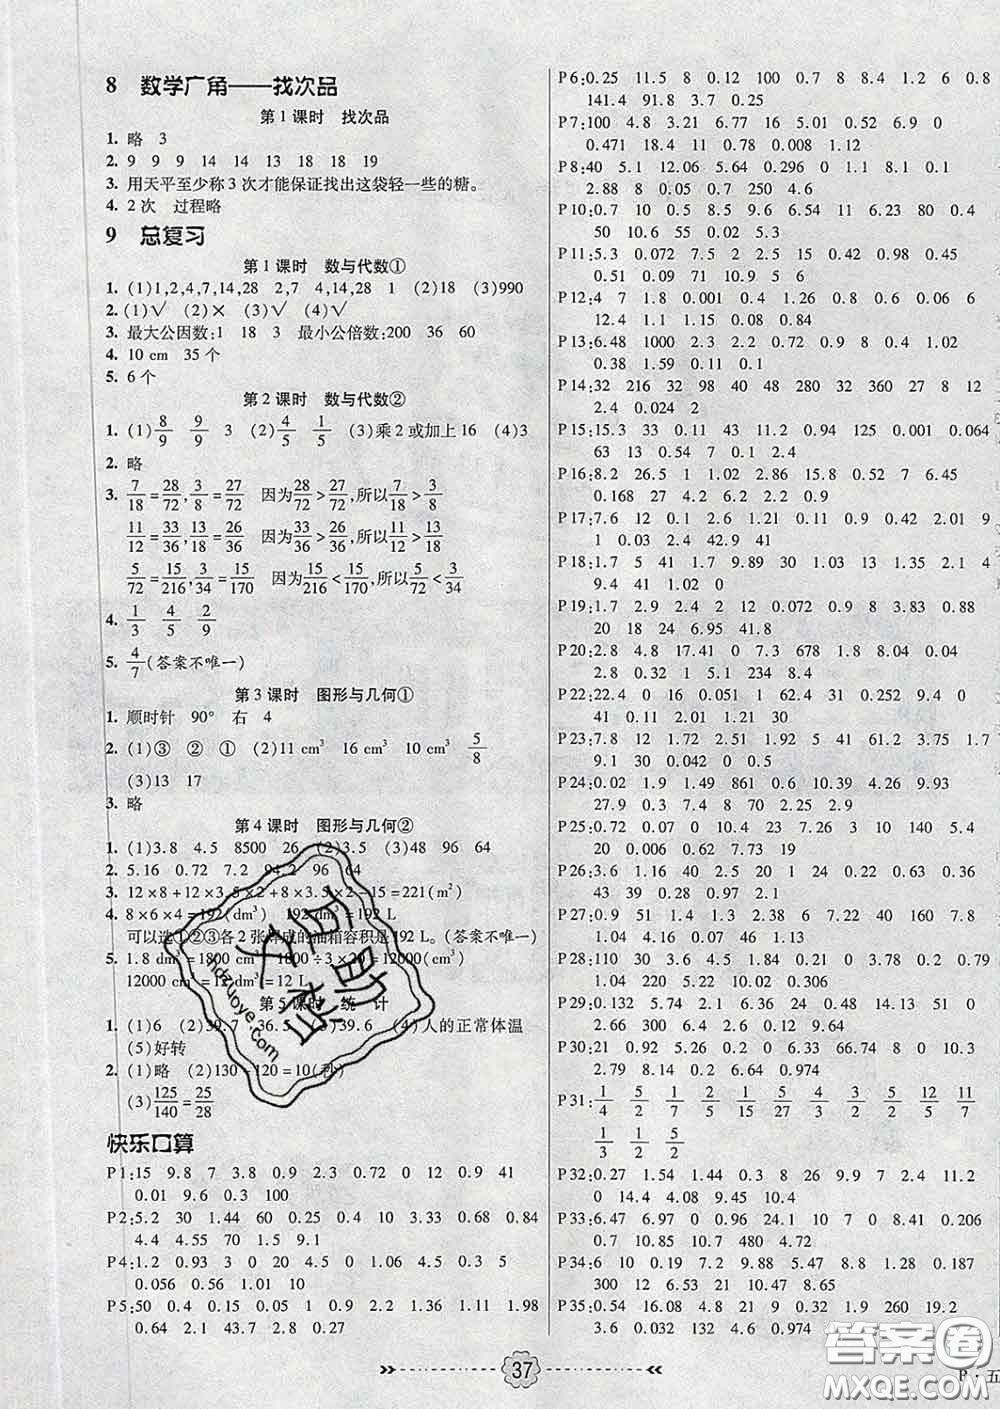 8 数学广角——找次品
第1课时 找次品
1. 略 3
2. 9 9 9 14 14 13 18 18 19
3. 用天平至少称3次才能保证找出这袋轻一些的糖。
4. 2次 过程略
9 总复习
第1课时 数与代数①
1. (1)1,2,4,7,14,28 2,7 4,14,28 1 (2)18 (3)990
2. (1)√ (2)× (3)√ (4)√
3. 最大公因数:1 18 3 最小公倍数:200 36 60
4. 10 cm 35个
5. 6个
第2课时 数与代数②
1. (1)8/9 9/9 3 (2)4/5 1/5 (3)乘2或加上16 (4)3
2. 略
3. 7/18=28/72,3/8=27/72 因为28/72>27/72,所以7/18>3/8
11/12=33/36,13/18=26/36 因为33/36>26/36,所以11/12>13/18
5/72=15/216,3/34=15/170 因为15/216<15/170,所以5/72<3/34
4. 1/3 4/5 2/9
5. 4/7(答案不唯一)
第3课时 图形与几何①
1. 顺时针 90° 右 4
2. (1)③ ② ① (2)11 cm³ 16 cm³ 10 cm³ 5/8
(3)13 17
3. 略
第4课时 图形与几何②
1. (1)3.8 4.5 8500 26 (2)3.5 (3)48 96 64
2. 5.16 0.72 7.2 94.2 96 64
3. 12×8+12×3.5×2+8×3.5×2-15=221(m²)
4. 8×6×4=192(dm³) 192 dm³=192 L
可以选①②③各2张焊成的油箱容积是192 L。(答案不唯一)
5. 1.8 dm³=1800 cm³ 1800÷3×20=12000(cm³)
12000 cm³=12 dm³=12 L
第5课时 统计
1. (1)6 (2)39.7 36.5 (3)39.6 (4)人的正常体温
(5)好转
2. (1)略 (2)130-120=10(秒)
(3)125/140=25/28
快乐口算
P1:15 9.8 7 3.8 0.9 2.3 0.72 0 12 0.9 41
0.01 9.6 0.3 100
P2:5.2 30 1.44 60 0.25 0.4 10 3.33 0.68 0.84
4.4 4.55 70 1.5 9.1
P4:1.2 0.93 0 20 0.45 0.3 0.2 3 1 0.5 5
0.056 0.56 1.01 10
P5:50 0.4 0.15 0.24 1.2 0.2 1.36 1.11 1.98
0.64 2.1 43.7 2.8 0.27
P6:0.25 11.5 8 0.12 100 0.7 8 8.4 1.2 6 0.8
141.4 91.8 3.7 0.25
P7:100 4.8 3.21 6.77 5 0.2 1.5 6.9 0
0.471 18.4 11 0.78 0.008 1.12
P8:40 5.1 12.06 5.64 0.296 0 1 8.1 0.1
2.88 8 0.05 0.7 250 4.6
P10:0.7 10 0.5 9 9.6 6.54 11 6.23 80 0.4
50 10.6 55 0.02 5.3
P11:5.3 0.072 7.15 0 2 15 0.42 0.98 0.8
0.49 0.48 71 10.9 5 6
P12:4 7 1.8 0.001 0.4 1.26 0.8 0.6 0.06 6
12.4 1.1 1.15 4.8 0
P13:6.48 1000 2.3 2.2 0.72 0 8.4 0.02
0.38 1.59 10.1 0.11 0.1
P14:32 216 32 98 40 48 280 32 360 27 8 12
2.4 0.024 2
P15:15.3 33 0.11 43 11.2 0.94 125 0.001 0.064
63 13 0.54 7 0.1 0
P16:8.2 26.5 1 1.02 2.86 15.8 0.52 7 6.45
0.168 27 4.2 6.2 6 1.1
P17:7.6 12 0.1 2.6 1.51 1.11 0.9 0.42 2.01 9
1 0.03 2.4 42.9 41
P18:1.7 5 41 1.7 9.89 30 1.03 13 35 2.1 4
9.4 41 1.02 0
P19:1.7 2.9 2.4 2 12 0.072 0.9 8 3.83 0.88
20 18 24 6.95 41.8
P20:2.8 4.8 17.41 0 7.3 678 1.8 8.04 0.04
0.32 0.8 1 5.1 234
P22:22.4 0 16 0.051 1 62.4 0.21 9.4 0
41 0.11 2.01 1.21 30
P23:7.8 12 1.72 2.51 1.92 5 41 61.2 3.75 1.7
9.1 30 0.042 0 0.5
P24:0.02 1.9 1.49 861 0.6 10.39 4.26 9.93
27.9 0.3 0.2 5 2.25 2.9
P25:0.72 0.07 0 10 4.35 23 3 10 140 5.4
20 1 56 4.8 1.22 1
P26:3 1.16 40 2.5 20 1 0.24 0.22 0.63 0.36
43 39 0.28 0.81 0.1
P27:0.9 51 1.4 1.9 2.38 6 7.22 40 160 7.8
1.08 1.04 4.56 0.07 46 3
P28:110 30 3.8 0.45 0.21 0 3.78 0.2 0.79
1.35 220 5.22 10.02 0.306
P29:0.132 5.4 7.8 0 0.24 0.38 14.13 9.51 0
2.66 31 0.11 0.6 0.12 9.64
P30:21 0.92 0.94 0.27 6.33 66.74 8 0 3
2.79 8.14 0.2 2.6 0.974
P31:1/4 5/2 1/7 2/5 1/15 1/2 5/4 12/5 11/7
1/3 1/2 5/2
P32:0.27 1.54 1.44 0.3 8 26 9.9 7 2.4
0 14.4 4.08 9.45 10.4
P33:6.47 6.97 0 0.96 7 0 14 8.41 0.206
0.7 10.9 150 480 4.72
P34:6 10 0.19 7.2 9.88 15 6.6 0.36 0.187
300 12 6.65 8.8 6
P35:0.54 16.08 4.8 21 9 0.32 1.9 260 19.2
3.6 0.032 132 4.6 0.974
37
答案圈
MXQE.COM